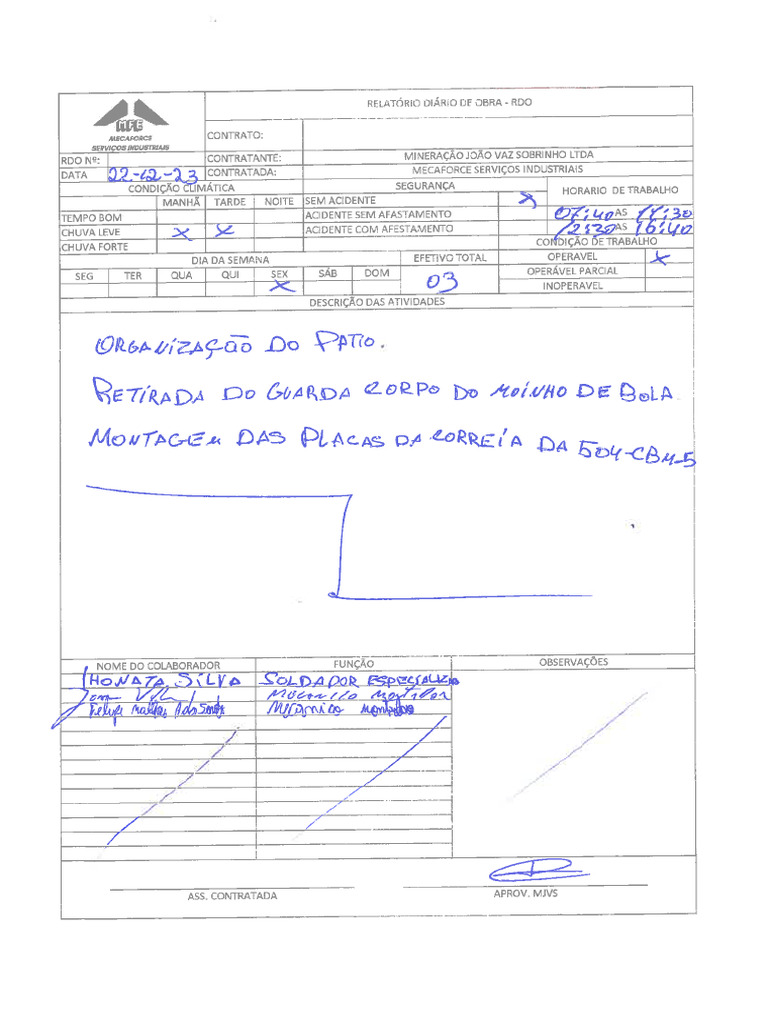 RELATÓRIO DIÁRIO DE OBRA - RDO
MFE
MECAFORCE
SERVIÇOS INDUSTRIAIS
CONTRATO:
RDO Nº:
CONTRATANTE: MINERAÇÃO JOÃO VAZ SOBRINHO LTDA
DATA 22-12-23 CONTRATADA: MECAFORCE SERVIÇOS INDUSTRIAIS
CONDIÇÃO CLIMÁTICA SEGURANÇA HORARIO DE TRABALHO
MANHÃ TARDE NOITE SEM ACIDENTE X
TEMPO BOM ACIDENTE SEM AFASTAMENTO 07:40 AS 11:30
CHUVA LEVE X X ACIDENTE COM AFESTAMENTO 12:30 AS 16:40
CHUVA FORTE CONDIÇÃO DE TRABALHO
DIA DA SEMANA EFETIVO TOTAL OPERAVEL X
SEG TER QUA QUI SEX SÁB DOM 03 OPERÁVEL PARCIAL
X INOPERAVEL
DESCRIÇÃO DAS ATIVIDADES
ORGANIZAÇÃO DO PATIO.
RETIRADA DO GUARDA CORPO DO MOINHO DE BOLA
MONTAGEM DAS PLACAS DA CORREIA DA 504-CBM-5
NOME DO COLABORADOR FUNÇÃO OBSERVAÇÕES
SILVA SOLDADOR
Mecanico
Felipe Mecanico
ASS. CONTRATADA APROV. MJVS